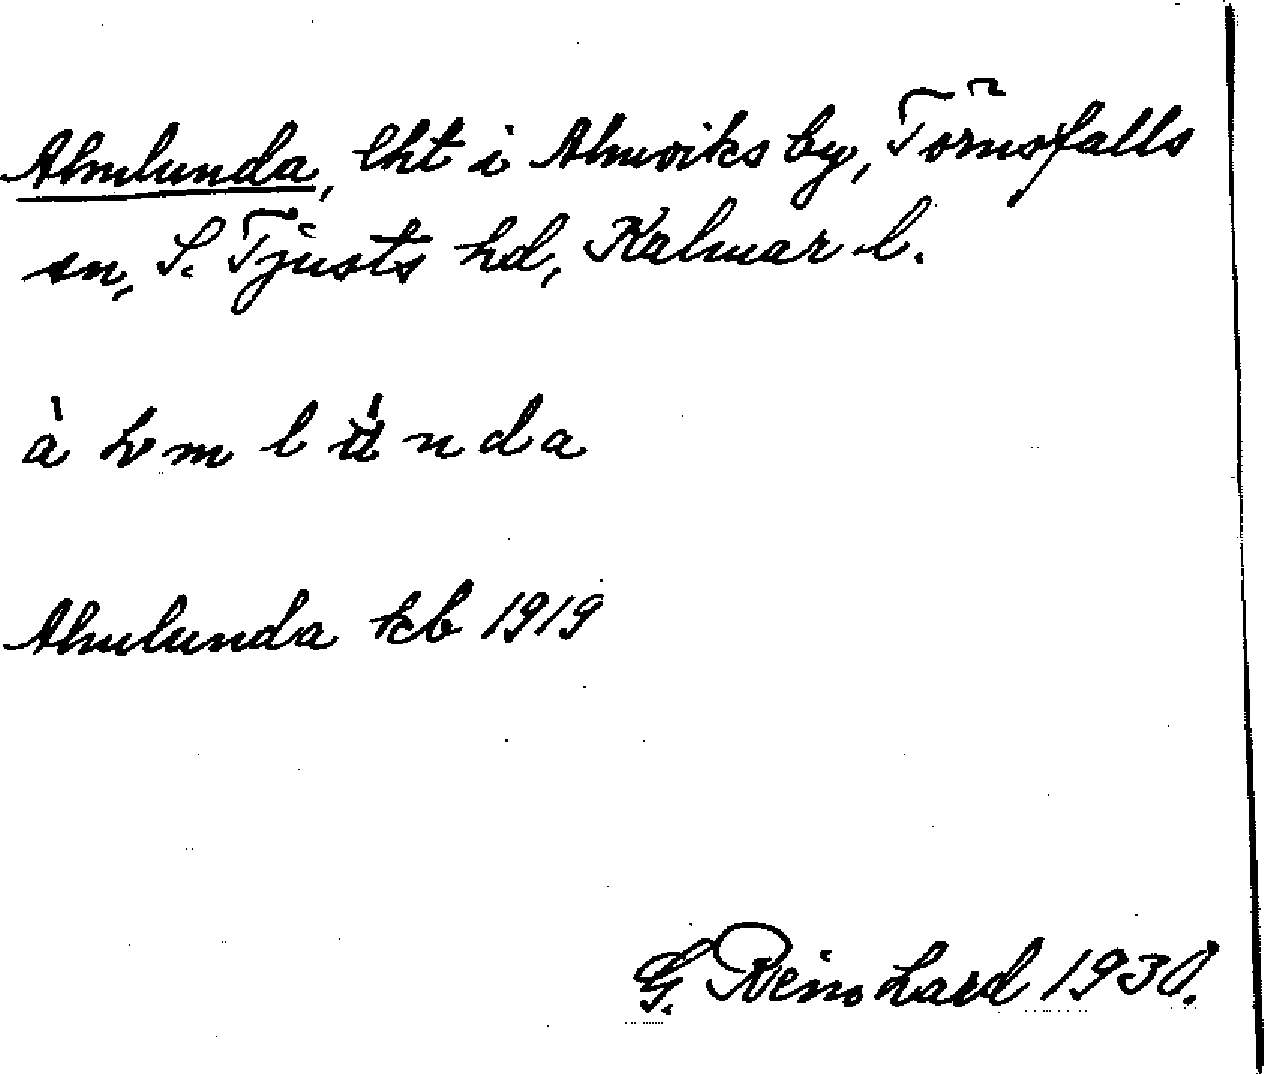 Almlunda, lht i Almviks by, Törnsfalls
sn, S. Tjusts hd, Kalmar l.
Almlunda kb 1919
G. Reinhard 1930.